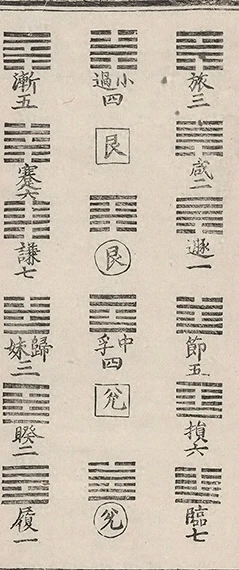 旅三
咸二
遯一
節五
損六
臨七
小過四
艮
艮
中孚四
兌
兌
漸五
蹇六
謙七
歸妹三
睽二
履一